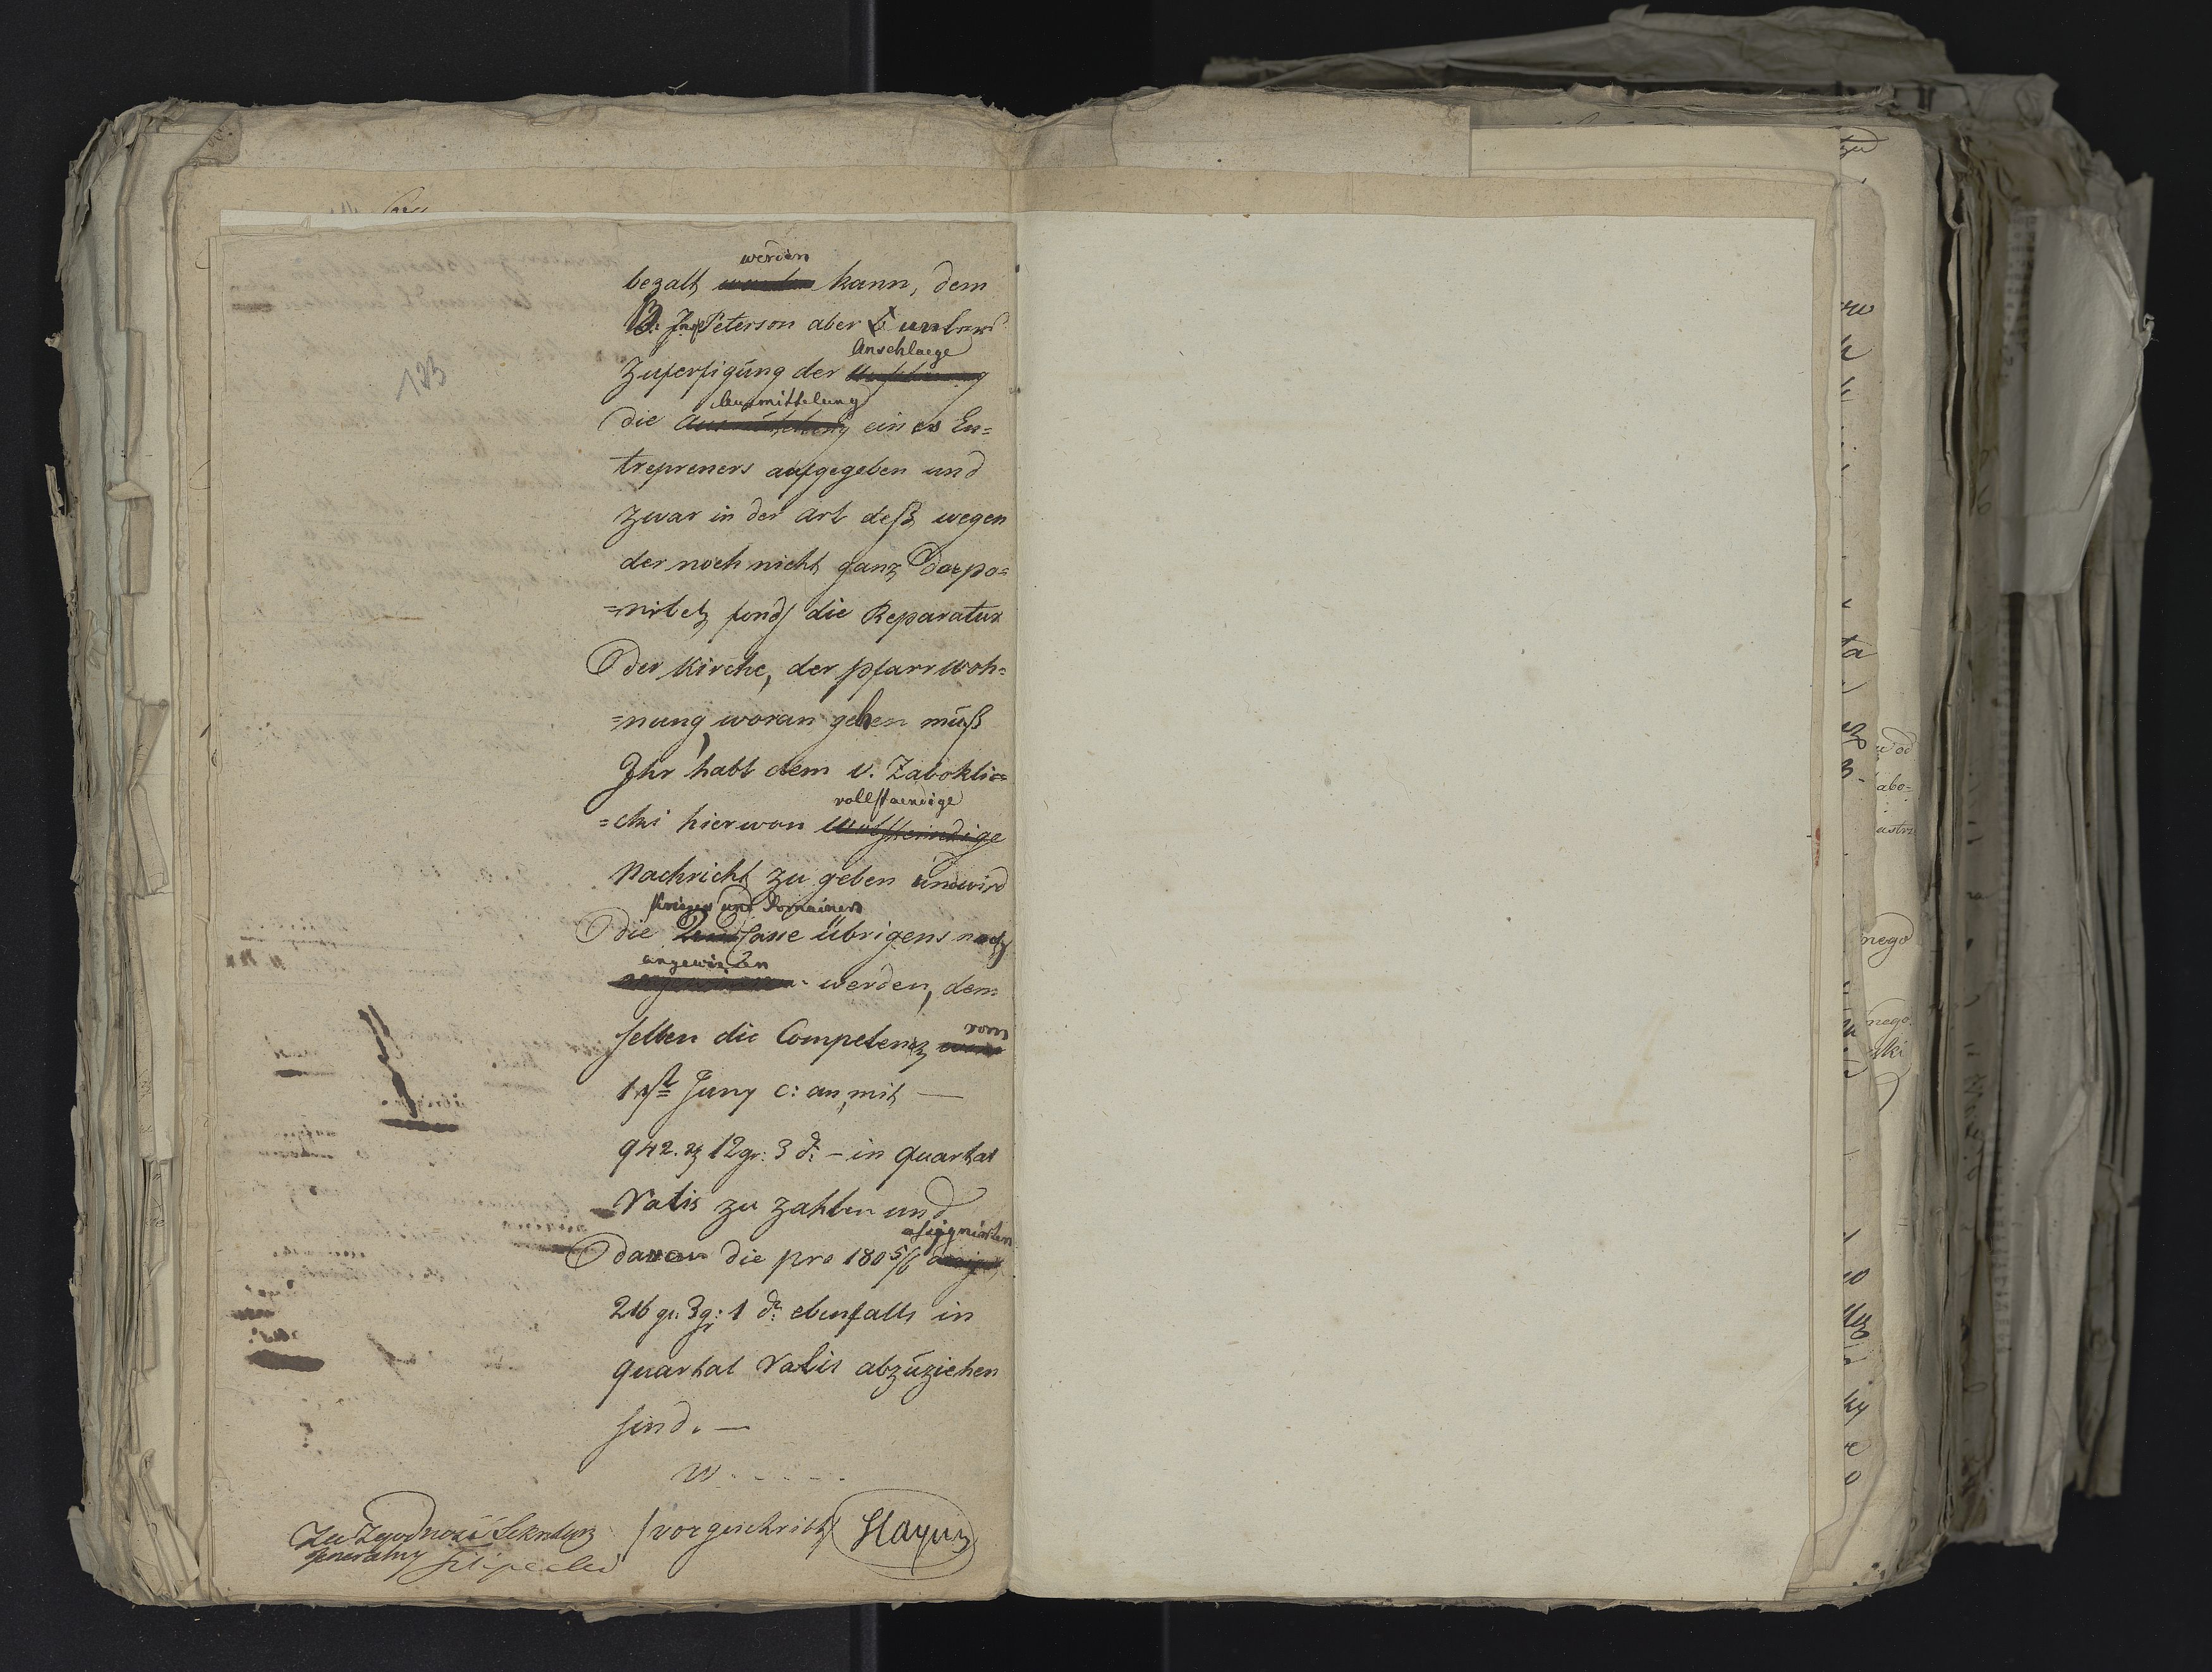 183
bezalt werden kann, dem
B: Insp Peterson aber unter
Zuferfigung der Anschlaege
die Ausmittelung eines En=
trepreners aufgegeben und
zwar in der art deß wegen
der noch nicht ganz
=nibel fonds die Reparatur
der Kirche, der pfarr woh=
=nung, woran gehen muß
Ihr habt dem v. Zaboklic=
=cki hierwon vollstaendige
Nachricht zu geben und wird
die Krieges und Domainen Casse übrigens noch
angewisen werden, dem=
selben die Competenz vom
1st Juny c: an, mit —
942. 12 gr: 3 d. – in quartal
ratis zu zahlen und
davon die pro 1805/6 assignirten
216 3 g: 1 d. ebenfalls in
quartal ratis abzuziehen
sind. —
W. - - - -
Za Zgodność Sekretarz
generalny
/ vorgeschrieb /